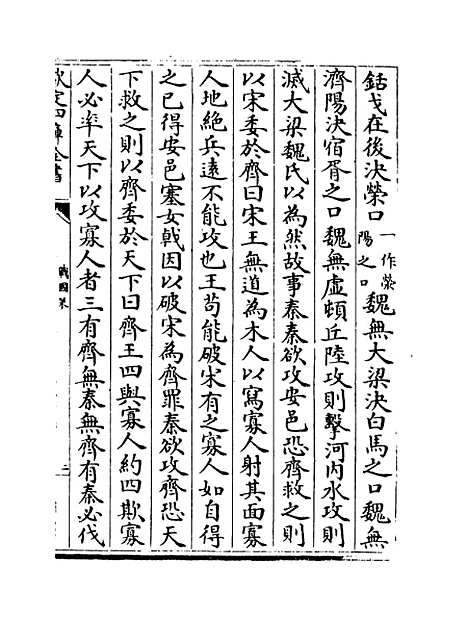 銛戈在後決榮口一作滎陽之口魏無大梁決白馬之口魏無
濟陽決宿胥之口魏無虛頓丘陸攻則擊河内水攻則
滅大梁魏氏以為然故事秦秦欲攻安邑恐齊救之則
以宋委於齊曰宋王無道為木人以寫寡人射其面寡
人地絶兵逺不能攻也王苟能破宋有之寡人如自得
之已得安邑塞女戟因以破宋為齊罪秦欲攻齊恐天
下救之則以齊委於天下曰齊王四與寡人約四欺寡
人必率天下以攻寡人者三有齊無秦無齊有秦必伐
欽定四庫全書
戰國策
二